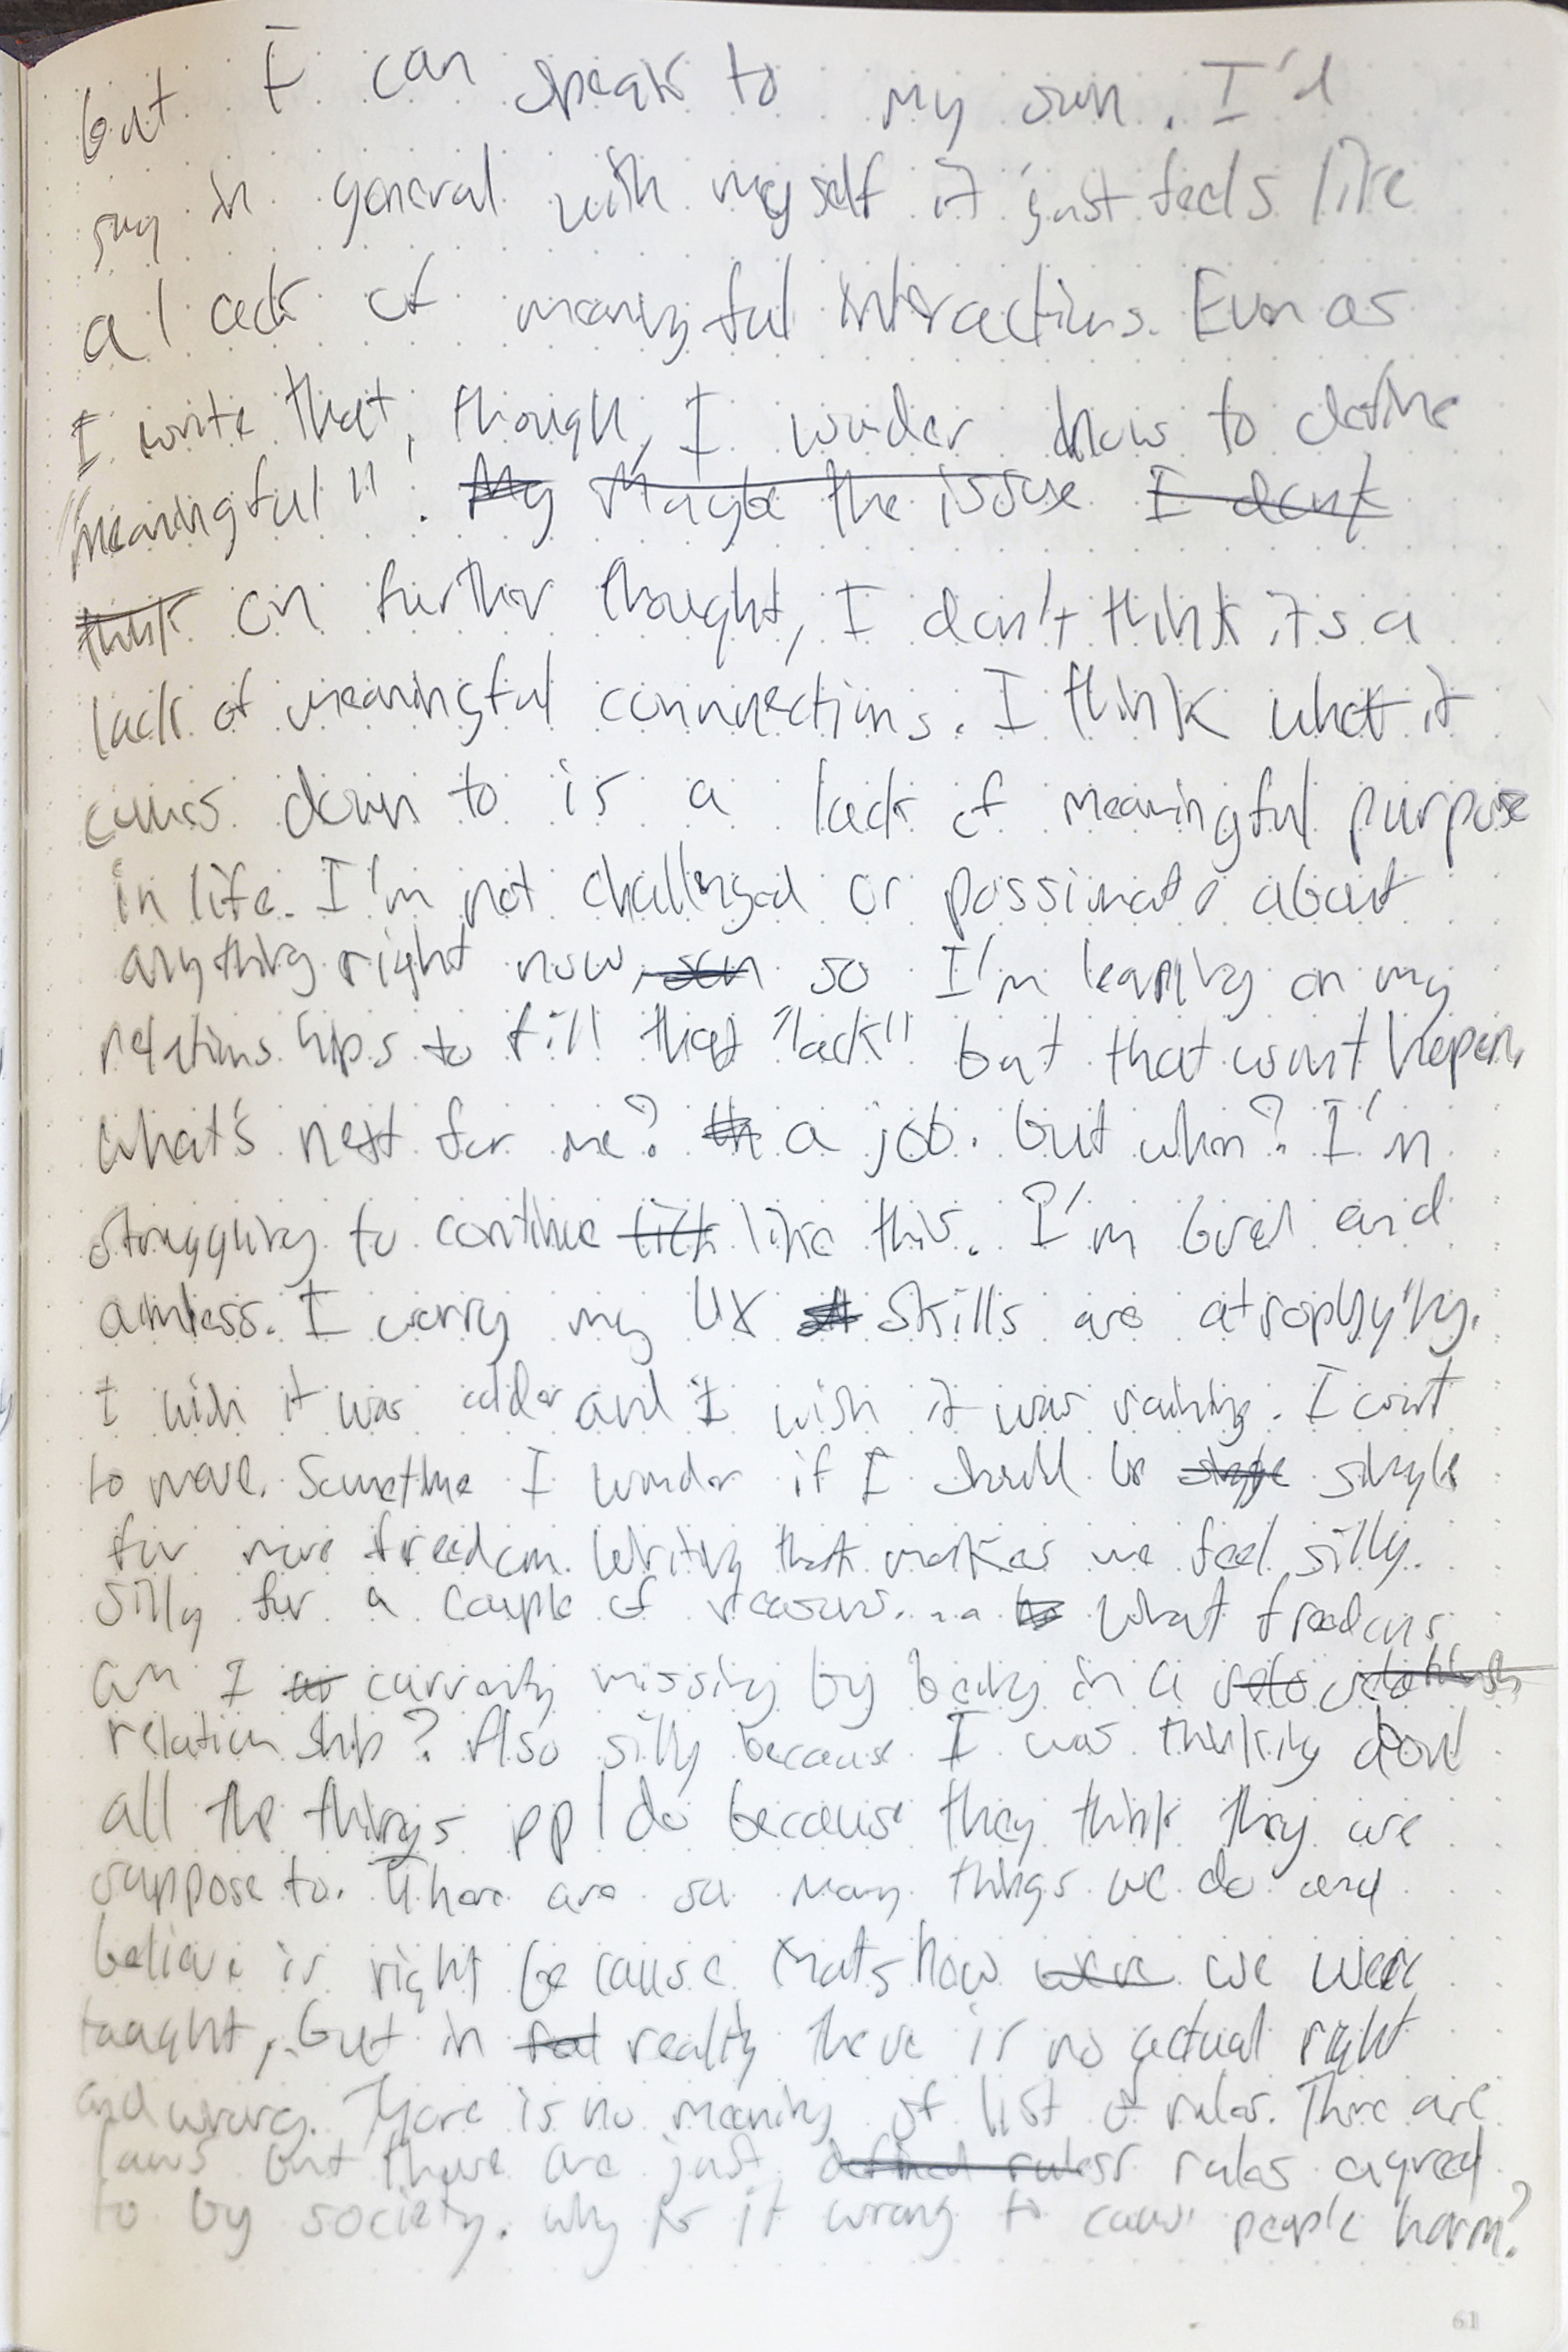 but I can speak to my own. I'd
say in general with myself it just feels like
a lack of meaningful interactions. Even as
I write that, though, I wonder how to define
"meaningful". My Maybe the issue I dont
think on further thought, I don't think its a
lack of meaningful connections. I think what it
comes down to is a lack of meaningful purpose
in life. I'm not challenged or passionate about
anything right now, so I'm leaning on my
relationships to fill that "lack" but that wont happen.
what's next for me? th a job. but when? I'm
struggling to continue like this. I'm bored and
aimless. I worry my UX skills are atrophying.
I wish it was colder and I wish it was raining. I want
to move. Sometime I wonder if I should be single
for more freedom. Writing that makes me feel silly.
Silly for a couple of reasons... what freedoms
am I currently missing by being in a relationship
relationship? Also silly because I was thinking about
all the things ppl do because they think they are
suppose to. There are so many things we do and
believe is right because thats how were we were
taught, but in reality there is no actual right
and wrong. There is no meaning of list of rules. There are
laws but those are just defined rules rules agreed
to by society. Why is it wrong to cause people harm?
61